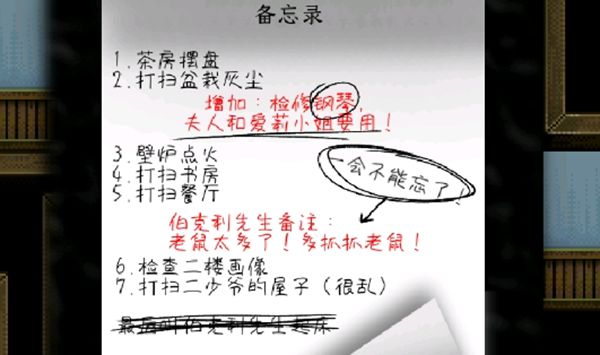 备忘录
1.茶房摆盘
2.打扫盆栽灰尘
增加：检修钢琴,
夫人和爱莉小姐要用！
3.壁炉点火
4.打扫书房
一会不能忘了！
5.打扫餐厅
伯克利先生备注：
老鼠太多了！多抓抓老鼠！
6.检查二楼画像
7.打扫二少爷的屋子（很乱）
最后叫伯克利先生起床